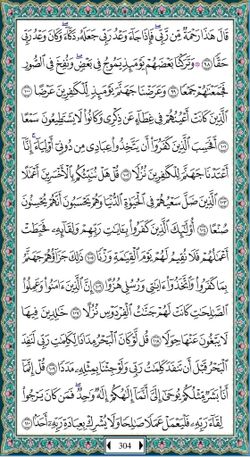 قَالَ هَٰذَا رَحْمَةٌ مِّن رَّبِّي ۖ فَإِذَا جَاءَ وَعْدُ رَبِّي جَعَلَهُ دَكَّاءَ ۖ وَكَانَ وَعْدُ رَبِّي
حَقًّا ٩٨ ۞ وَتَرَكْنَا بَعْضَهُمْ يَوْمَئِذٍ يَمُوجُ فِي بَعْضٍ ۖ وَنُفِخَ فِي الصُّورِ
فَجَمَعْنَاهُمْ جَمْعًا ٩٩ وَعَرَضْنَا جَهَنَّمَ يَوْمَئِذٍ لِّلْكَافِرِينَ عَرْضًا ١٠٠
الَّذِينَ كَانَتْ أَعْيُنُهُمْ فِي غِطَاءٍ عَن ذِكْرِي وَكَانُوا لَا يَسْتَطِيعُونَ سَمْعًا
١٠١ أَفَحَسِبَ الَّذِينَ كَفَرُوا أَن يَتَّخِذُوا عِبَادِي مِن دُونِي أَوْلِيَاءَ ۚ إِنَّا
أَعْتَدْنَا جَهَنَّمَ لِلْكَافِرِينَ نُزُلًا ١٠٢ قُلْ هَلْ نُنَبِّئُكُم بِالْأَخْسَرِينَ أَعْمَالًا
١٠٣ الَّذِينَ ضَلَّ سَعْيُهُمْ فِي الْحَيَاةِ الدُّنْيَا وَهُمْ يَحْسَبُونَ أَنَّهُمْ يُحْسِنُونَ
صُنْعًا ١٠٤ أُولَٰئِكَ الَّذِينَ كَفَرُوا بِآيَاتِ رَبِّهِمْ وَلِقَائِهِ فَحَبِطَتْ
أَعْمَالُهُمْ فَلَا نُقِيمُ لَهُمْ يَوْمَ الْقِيَامَةِ وَزْنًا ١٠٥ ذَٰلِكَ جَزَاؤُهُمْ جَهَنَّمُ
بِمَا كَفَرُوا وَاتَّخَذُوا آيَاتِي وَرُسُلِي هُزُوًا ١٠٦ إِنَّ الَّذِينَ آمَنُوا وَعَمِلُوا
الصَّالِحَاتِ كَانَتْ لَهُمْ جَنَّاتُ الْفِرْدَوْسِ نُزُلًا ١٠٧ خَالِدِينَ فِيهَا
لَا يَبْغُونَ عَنْهَا حِوَلًا ١٠٨ قُل لَّوْ كَانَ الْبَحْرُ مِدَادًا لِّكَلِمَاتِ رَبِّي لَنَفِدَ
الْبَحْرُ قَبْلَ أَن تَنفَدَ كَلِمَاتُ رَبِّي وَلَوْ جِئْنَا بِمِثْلِهِ مَدَدًا ١٠٩ قُلْ إِنَّمَا
أَنَا بَشَرٌ مِّثْلُكُمْ يُوحَىٰ إِلَيَّ أَنَّمَا إِلَٰهُكُمْ إِلَٰهٌ وَاحِدٌ ۖ فَمَن كَانَ يَرْجُو
لِقَاءَ رَبِّهِ فَلْيَعْمَلْ عَمَلًا صَالِحًا وَلَا يُشْرِكْ بِعِبَادَةِ رَبِّهِ أَحَدًا ١١٠
304